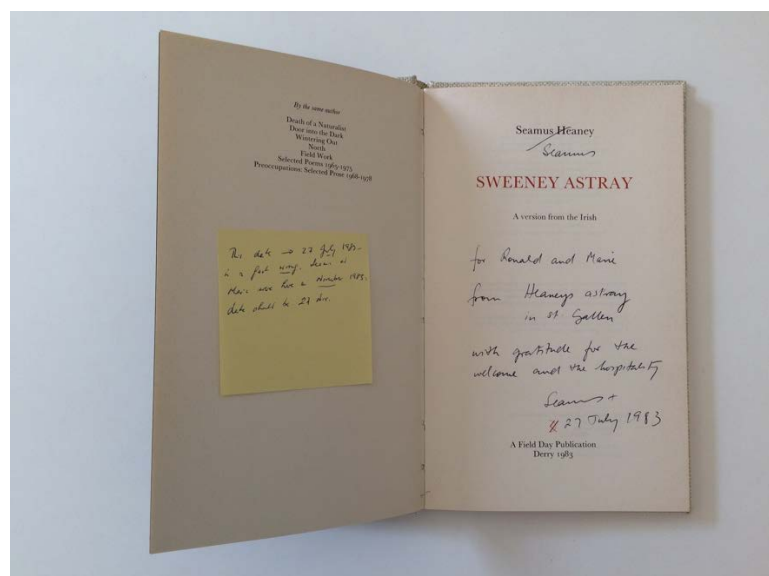 By the same author
Death of a Naturalist
Door into the Dark
Wintering Out
North
Field Work
Selected Poems 1965-1975
Preoccupations: Selected Prose 1968-1978
This date → 27 July 1983 -
is a fact wrong. Seamus
Marie were here in November 1983.
date should be 27
Seamus Heaney
Seamus
SWEENEY ASTRAY
A version from the Irish
for Ronald and Marie
from Heaneys astray
in St. Gallen
with gratitude for the
welcome and the hospitality
Seamus +
27 July 1983
A Field Day Publication
Derry 1983